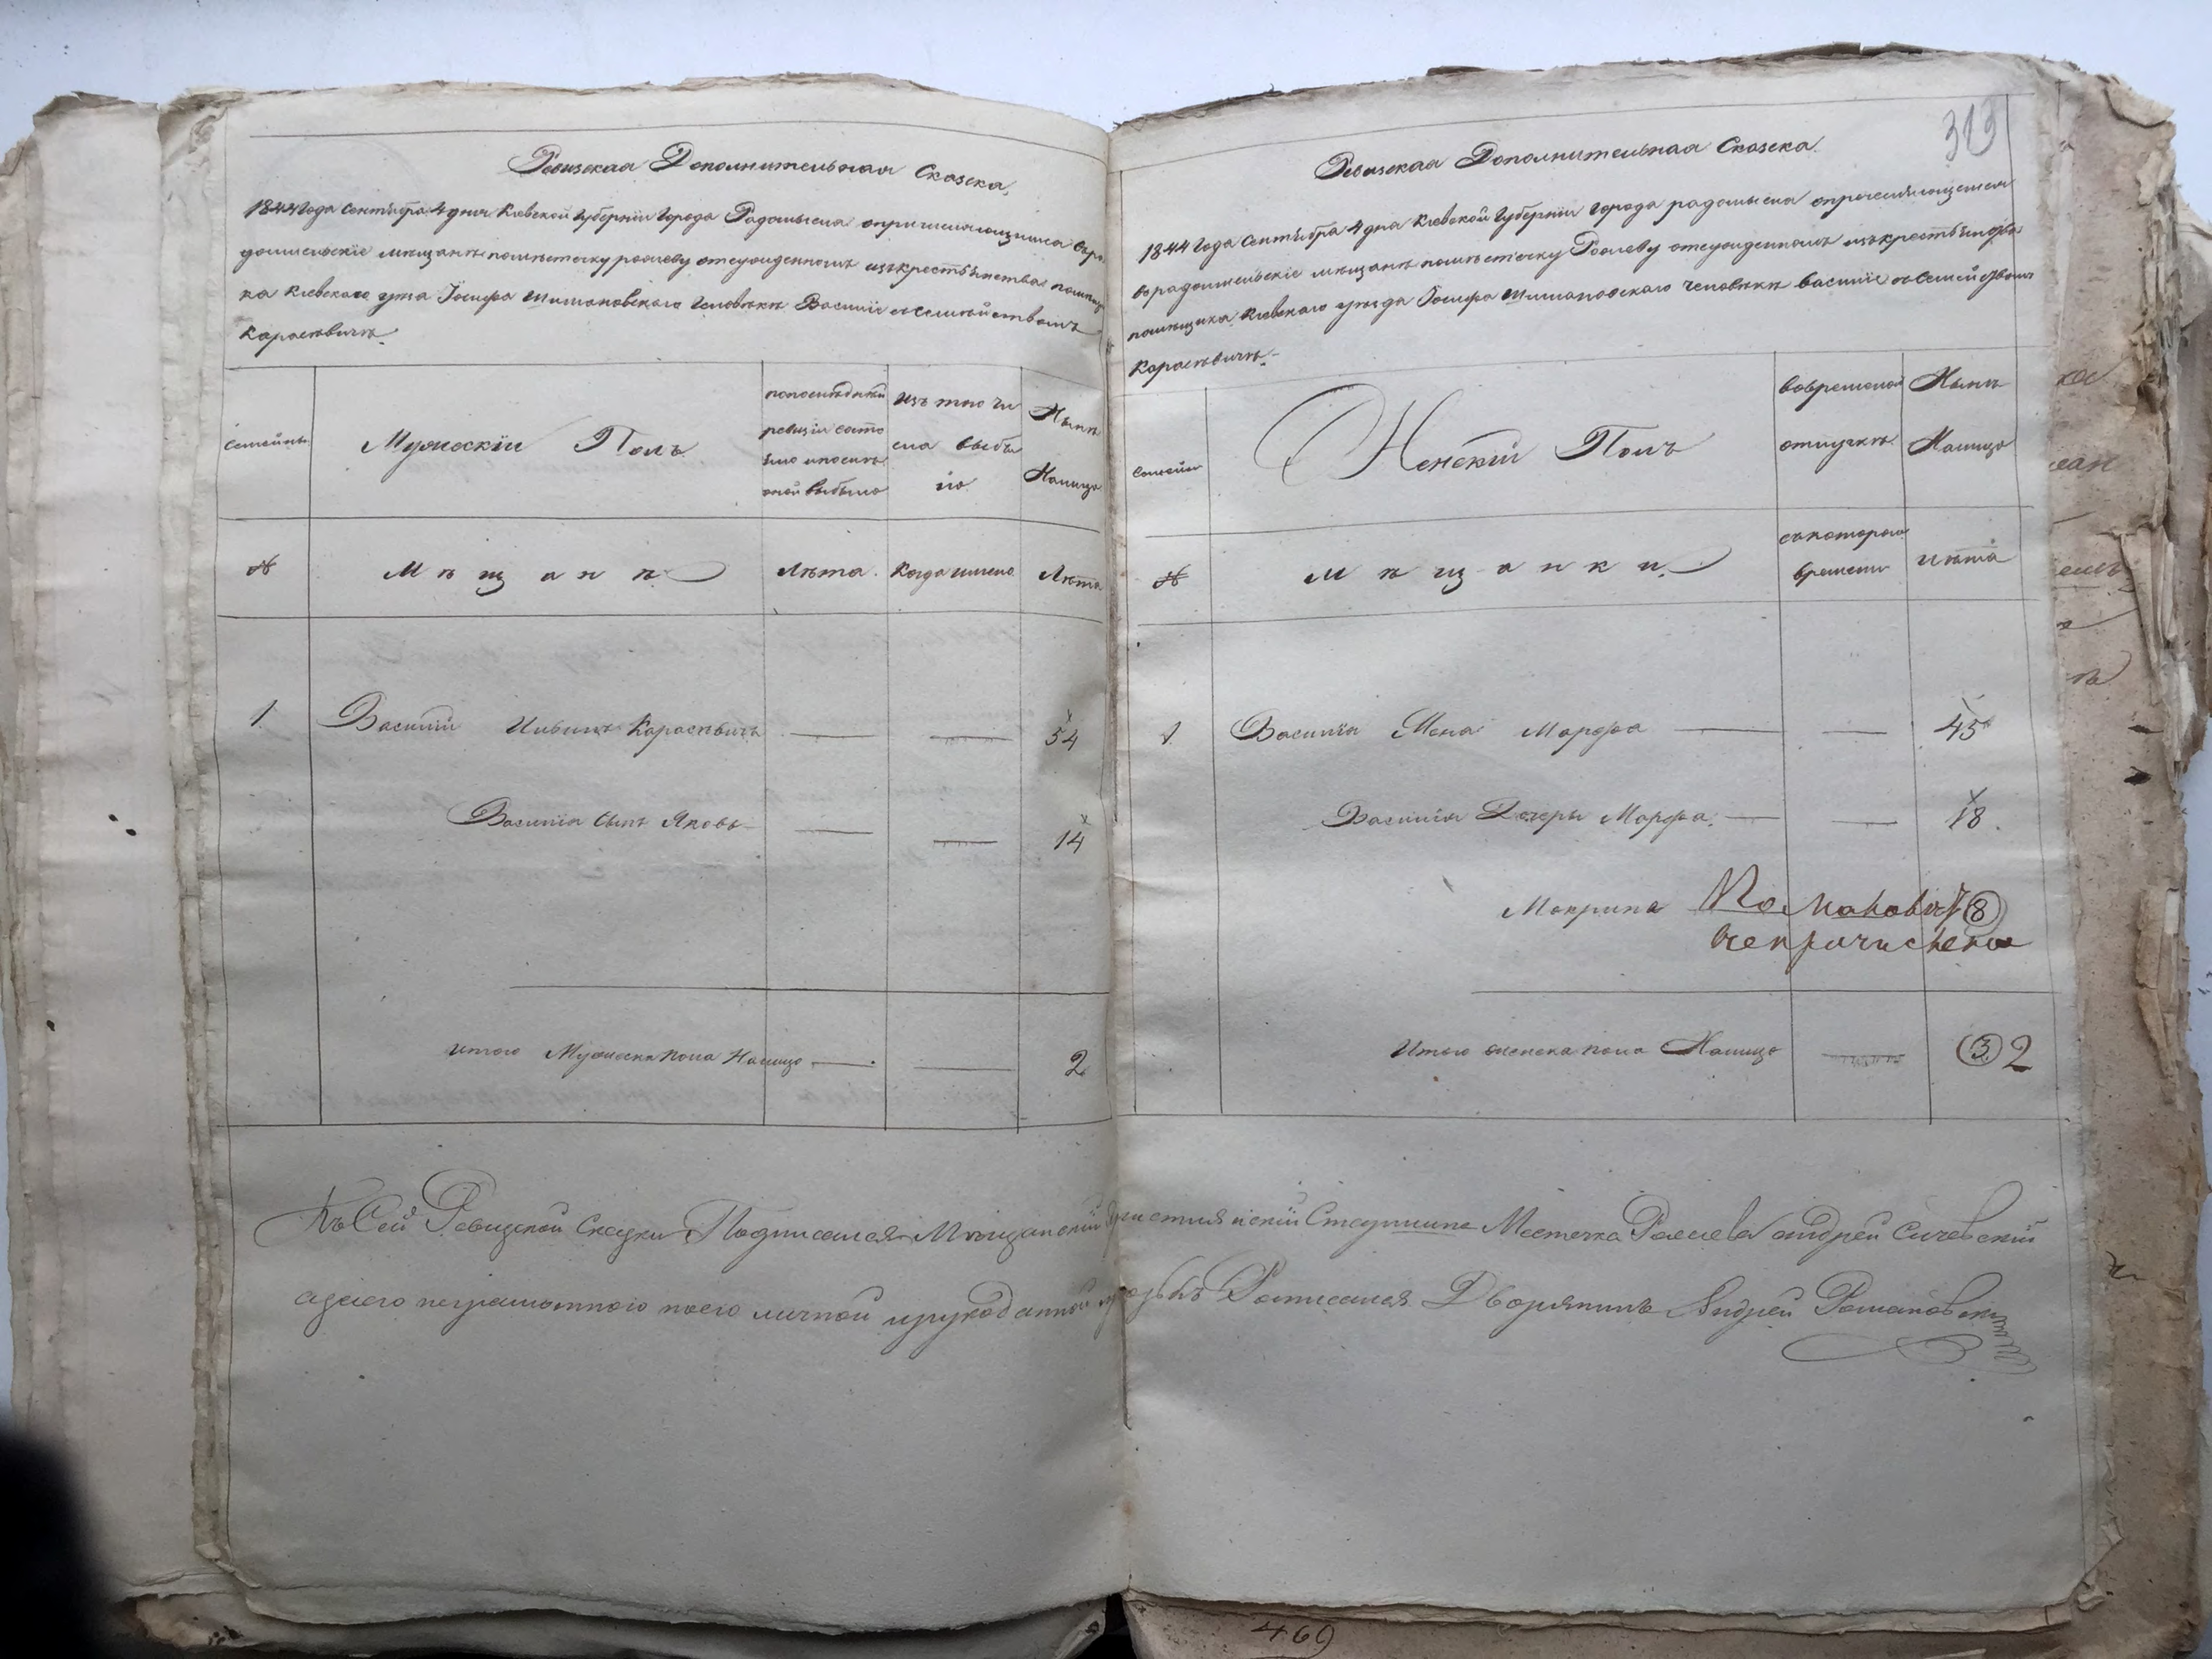 Ревизская Дополнительная Сказка.
1844 года Сентября 4 дня Киевской Губернии Города Радомысла о причисляющимся въ ра-
домысльские мещане по местечку Рожеву отсужденномъ изъ крестьянства помещи-
ка Киевского уезда Иосифа Шимановского человеке Василие с семействомъ
Карасевиче.
Семейные
Мужескій Полъ
по последней
ревизіи состо
яло и после
оной выбыло
Изъ того чи
сла выбы
ло
Ныне
Налицо
№
Мещане
Лета.
Когда именно
Лета
1.
Василий Ивановъ Карасевичъ
54
Василія сынъ Яковъ
14
Итого Мужеска пола Налицо
2
319
Ревизская Дополнительная Сказка.
1844 года Сентября 4 дня Киевской Губерніи Города Радомысла о причисляющемся
въ радомысльскіе мещане по местечку Рожеву отсужденномъ изъ крестьянства
помещика Киевского уезда Иосифа Шимановского человеке Василіе с семействомъ
Карасевиче.
Семейные
Женскій Полъ
во временной
отлучке
Ныне
Налицо
№
Мещанки.
съ которого
времени
Лета
1.
Василія Жена Марфа
45
Василія Дочерь Марфа.
18.
Макрина
8
непричислена
Итого женска пола Налицо
3 2
Къ Сей Ревизской Сказки Подписался Мещанскій Християнскій Старшина Местечка Рожева Андрей Сичевскій
а за его неграмотного по его личной и рукоданной прозьбе Росписался Дворянинъ Андрей Романовскій
469